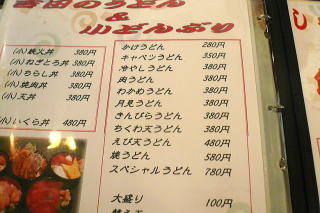 吉田のうどん
&
小どんぶり
(小)鉄火丼 380円
(小)ねぎとろ丼 380円
(小)ちらし丼 380円
(小)焼肉丼 380円
(小)天丼 380円
(小)いくら丼 480円
かけうどん 280円
キャベツうどん 350円
冷やしうどん 380円
肉うどん 380円
わかめうどん 380円
月見うどん 380円
きんぴらうどん 380円
ちくわ天うどん 380円
えび天うどん 480円
焼うどん 580円
スペシャルうどん 780円
大盛り 100円